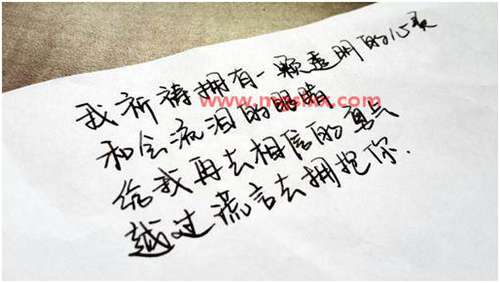 我祈祷拥有一颗透明的心灵
和会流泪的眼睛
给我再去相信的勇气
越过谎言去拥抱你.